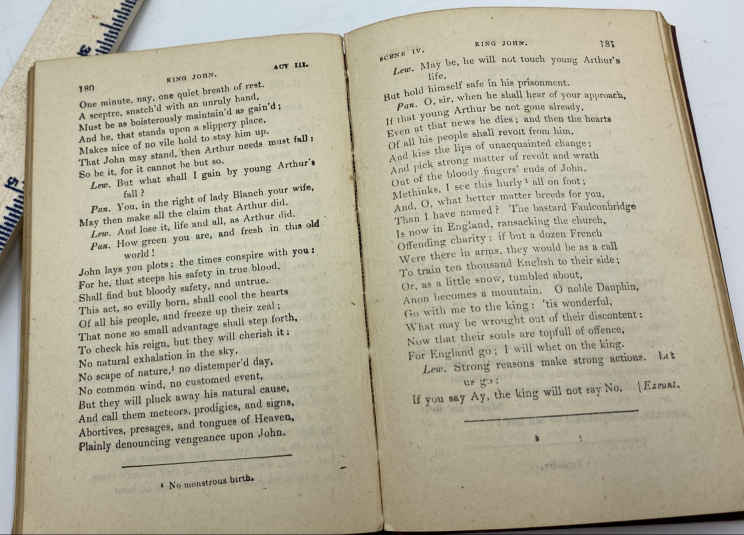 180 KING JOHN. ACT III.
One minute, nay, one quiet breath of rest.
A sceptre, snatch'd with an unruly hand,
Must be as boisterously maintain'd as gain'd;
And he, that stands upon a slippery place,
Makes nice of no vile hold to stay him up.
That John may stand, then Arthur needs must fall;
So be it, for it cannot be but so.
Lew. But what shall I gain by young Arthur's
fall?
Pan. You, in the right of lady Blanch your wife,
May then make all the claim that Arthur did.
Lew. And lose it, life and all, as Arthur did.
Pan. How green you are, and fresh in this old
world!
John lays you plots; the times conspire with you:
For he, that steeps his safety in true blood,
Shall find but bloody safety, and untrue.
This act, so evilly born, shall cool the hearts
Of all his people, and freeze up their zeal;
That none so small advantage shall step forth,
To check his reign, but they will cherish it;
No natural exhalation in the sky,
No scape of nature,¹ no distemper'd day,
No common wind, no customed event,
But they will pluck away his natural cause,
And call them meteors, prodigies, and signs,
Abortives, presages, and tongues of Heaven,
Plainly denouncing vengeance upon John.
¹ No monstrous birth.
SCENE IV. KING JOHN. 181
Lew. May be, he will not touch young Arthur's
life,
But hold himself safe in his prisonment.
Pan. O, sir, when he shall hear of your approach,
If that young Arthur be not gone already,
Even at that news he dies; and then the hearts
Of all his people shall revolt from him,
And kiss the lips of unacquainted change;
And pick strong matter of revolt and wrath
Out of the bloody fingers' ends of John.
Methinks, I see this hurly¹ all on foot;
And, O, what better matter breeds for you,
Than I have named? The bastard Faulconbridge
Is now in England, ransacking the church,
Offending charity; if but a dozen French
Were there in arms, they would be as a call
To train ten thousand English to their side;
Or, as a little snow, tumbled about,
Anon becomes a mountain. O noble Dauphin,
Go with me to the king: 'tis wonderful,
What may be wrought out of their discontent:
Now that their souls are topfull of offence,
For England go; I will whet on the king.
Lew. Strong reasons make strong actions. Let
us go:
If you say Ay, the king will not say No. [Exeunt.